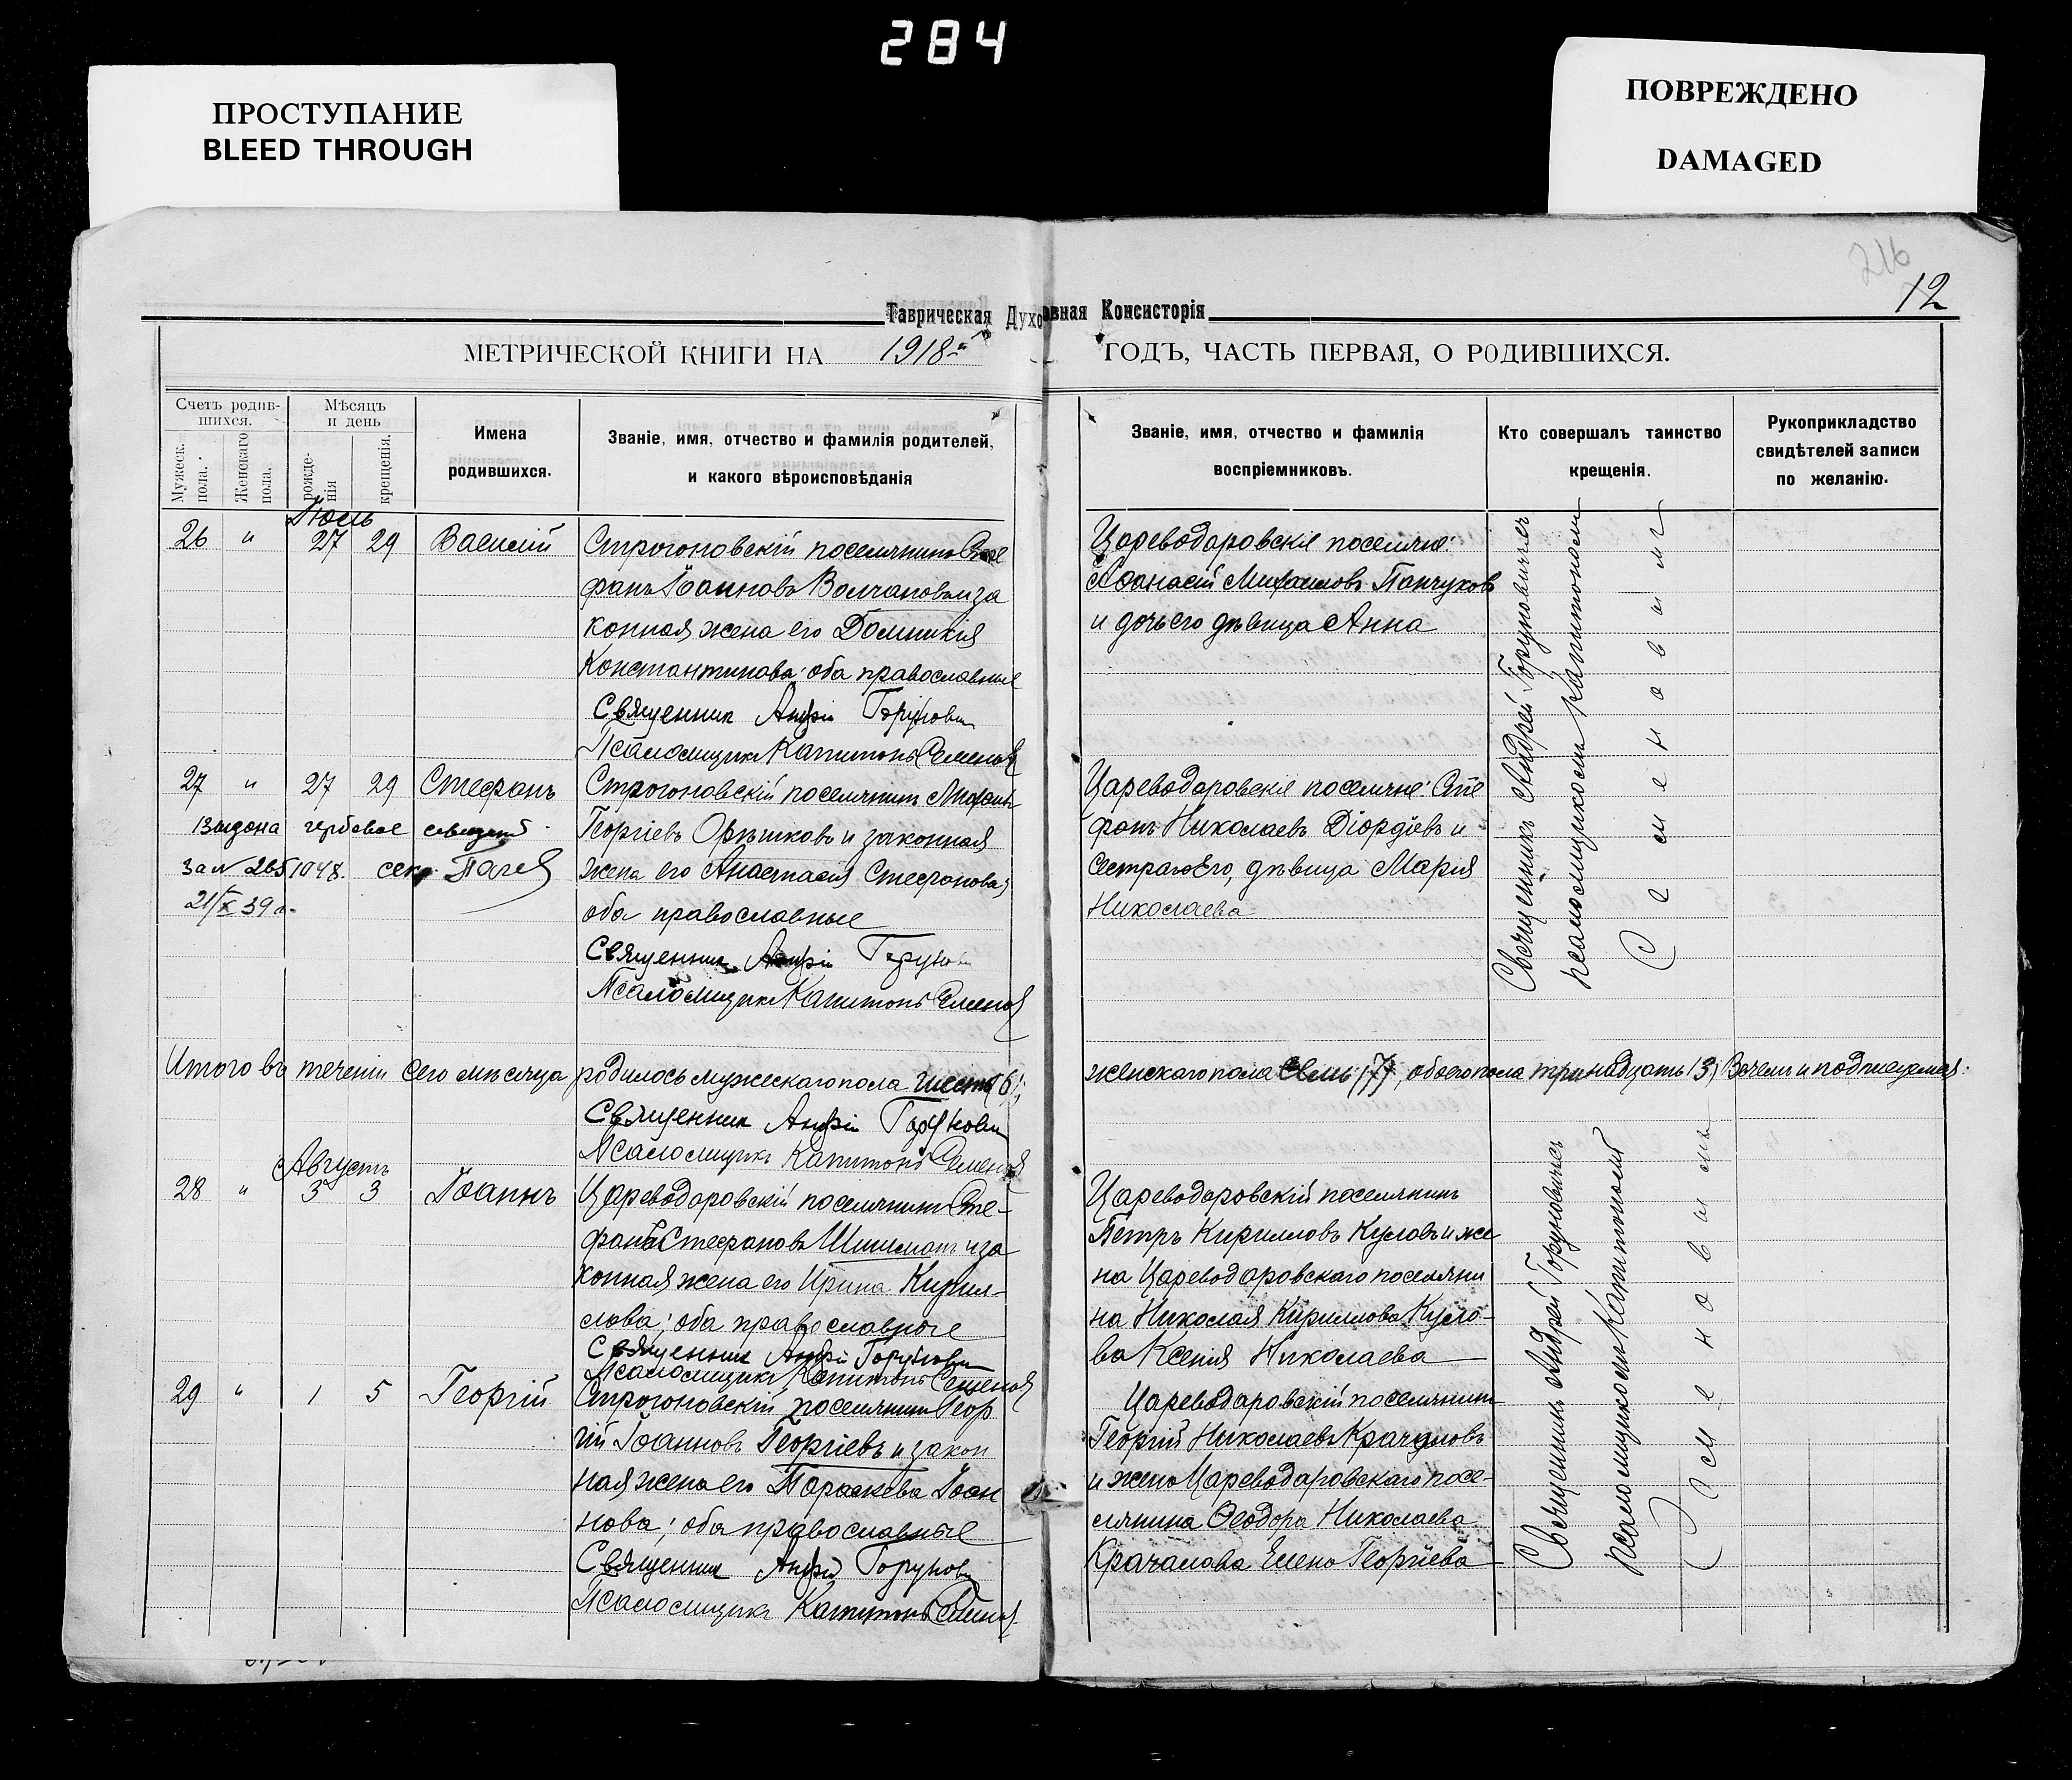 284
ПРОСТУПАНИЕ
BLEED THROUGH
ПОВРЕЖДЕНО
DAMAGED
216
12
Таврическая Духовная Консисторія
МЕТРИЧЕСКОЙ КНИГИ НА 1918 ГОДЪ, ЧАСТЬ ПЕРВАЯ, О РОДИВШИХСЯ.
Счетъ родив-
шихся.
Мужеск.
пола.
Женскаго
пола.
Мѣсяцъ
и день
рожде-
нія
крещенія.
Имена
родившихся.
Званіе, имя, отчество и фамилія родителей,
и какого вѣроисповѣданія
Званіе, имя, отчество и фамилія
воспріемниковъ.
Кто совершалъ таинство
крещенія.
Рукоприкладство
свидѣтелей записи
по желанію.
Іюль
26 " 27 29 Василій
Строгоновскій поселянинъ Сте
фанъ Іоанновъ Волчановъ и за
конная жена его Домникія
Константинова оба православные
Священник Андрій Горунович
Псаломщикъ Капитонъ Семенов
Цареводаровскіе поселяне:
Аѳанасій Михаиловъ Панчуковъ
и дочь его дѣвица Анна
27 " 27 29 Стефанъ
Выдана гербовое
за № 265 1948. секр.
21/X 39 г.
Строгоновскій поселянинъ Михаилъ
Георгіевъ Орѣшковъ и законная
жена его Анастасія Стефанова;
оба православные
Священник Андрій Горунович
Псаломщикъ Капитонъ Семенов
Цареводаровскіе поселяне: Сте
фанъ Николаевъ Діордіевъ и
сестра его, дѣвица Марія
Николаева
Священникъ Андрей Горуновичъ съ
псаломщикомъ Капитономъ
Семеновымъ
Итого въ теченіи сего мѣсяца родилось мужескаго пола шесть (6); женскаго пола семь (7), обоего пола тринадцать (13) В чемъ и подписуемся:
Священник Андрій Горунович
Псаломщикъ Капитонъ Семенов
Августъ
28 " 3 3 Іоаннъ
Цареводаровскій поселянинъ Сте-
фанъ Стефановъ Шишманъ и за
конная жена его Ирина Кирил-
лова; оба православные
Священник Андрій Горунович
Псаломщикъ Капитонъ Семенов
Цареводаровскій поселянинъ
Петръ Кирилловъ Куловъ и же
на Цареводаровскаго поселяни
на Николая Кириллова Куло-
ва Ксенія Николаева
29 " 1 5 Георгій
Строгоновскій поселянинъ Геор
гій Іоанновъ Георгіевъ и закон
ная жена его Параскева Іоан
нова; оба православные
Священник Андрій Горунович
Псаломщикъ Капитонъ Семенов
Цареводаровскій поселянинъ
Георгій Николаевъ Крачаловъ
и жена Цареводаровскаго посе-
лянина Ѳеодора Николаева
Крачалова Елена Георгіева
Священникъ Андрей Горуновичъ съ
псаломщикомъ Капитономъ
Семеновымъ